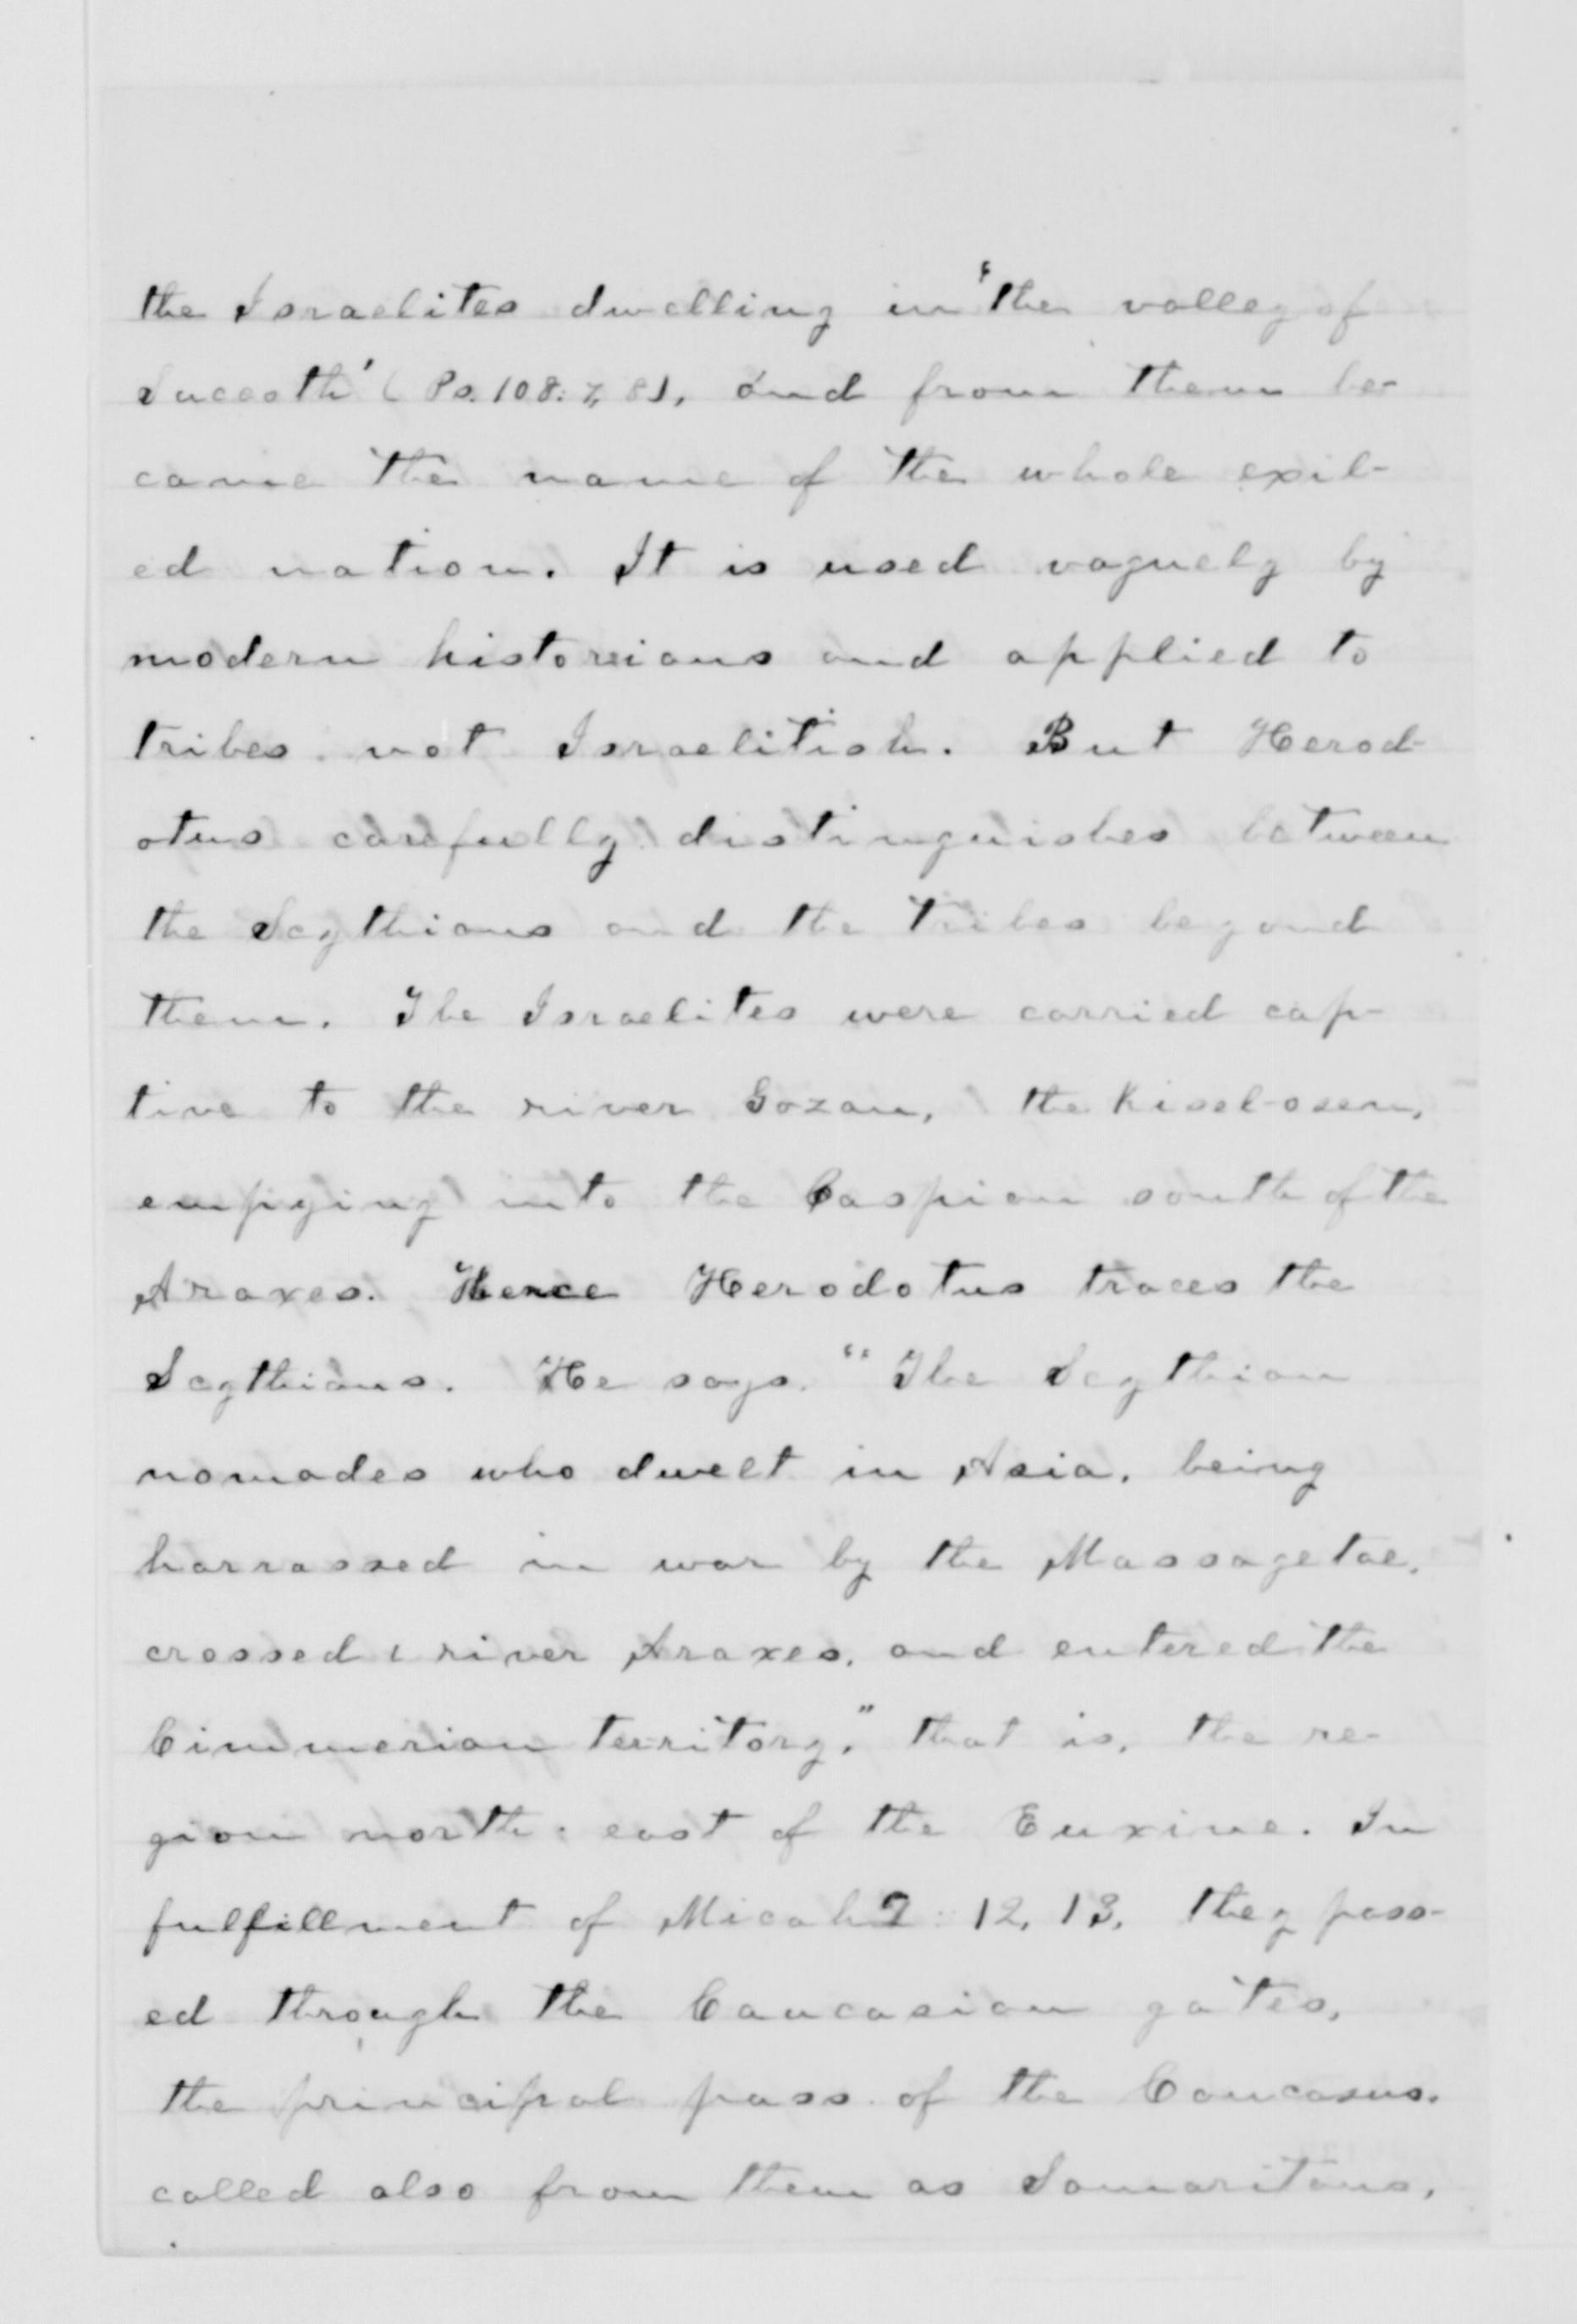 the Israelites dwelling in 'the valley of
Succoth' (Ps. 108: 7, 8), and from them be-
came the name of the whole exil-
ed nation. It is used vaguely by
modern historians and applied to
tribes not Israelitish. But Herod-
otus carefully distinguishes between
the Scythians and the tribes beyond
them. The Israelites were carried cap-
tive to the river Gozan, the Kisel-osen,
emptying into the Caspian south of the
Araxes. Thence Herodotus traces the
Scythians. He says. "The Scythian
nomades who dwelt in Asia, being
harrassed in war by the Massagetae,
crossed river Araxes, and entered the
Cimmerian territory," that is, the re-
gion north-east of the Euxine. In
fulfillment of Micah 2: 12, 13, they pass-
ed through the Caucasian gates,
the principal pass of the Caucasus.
called also from them as Samaritans,